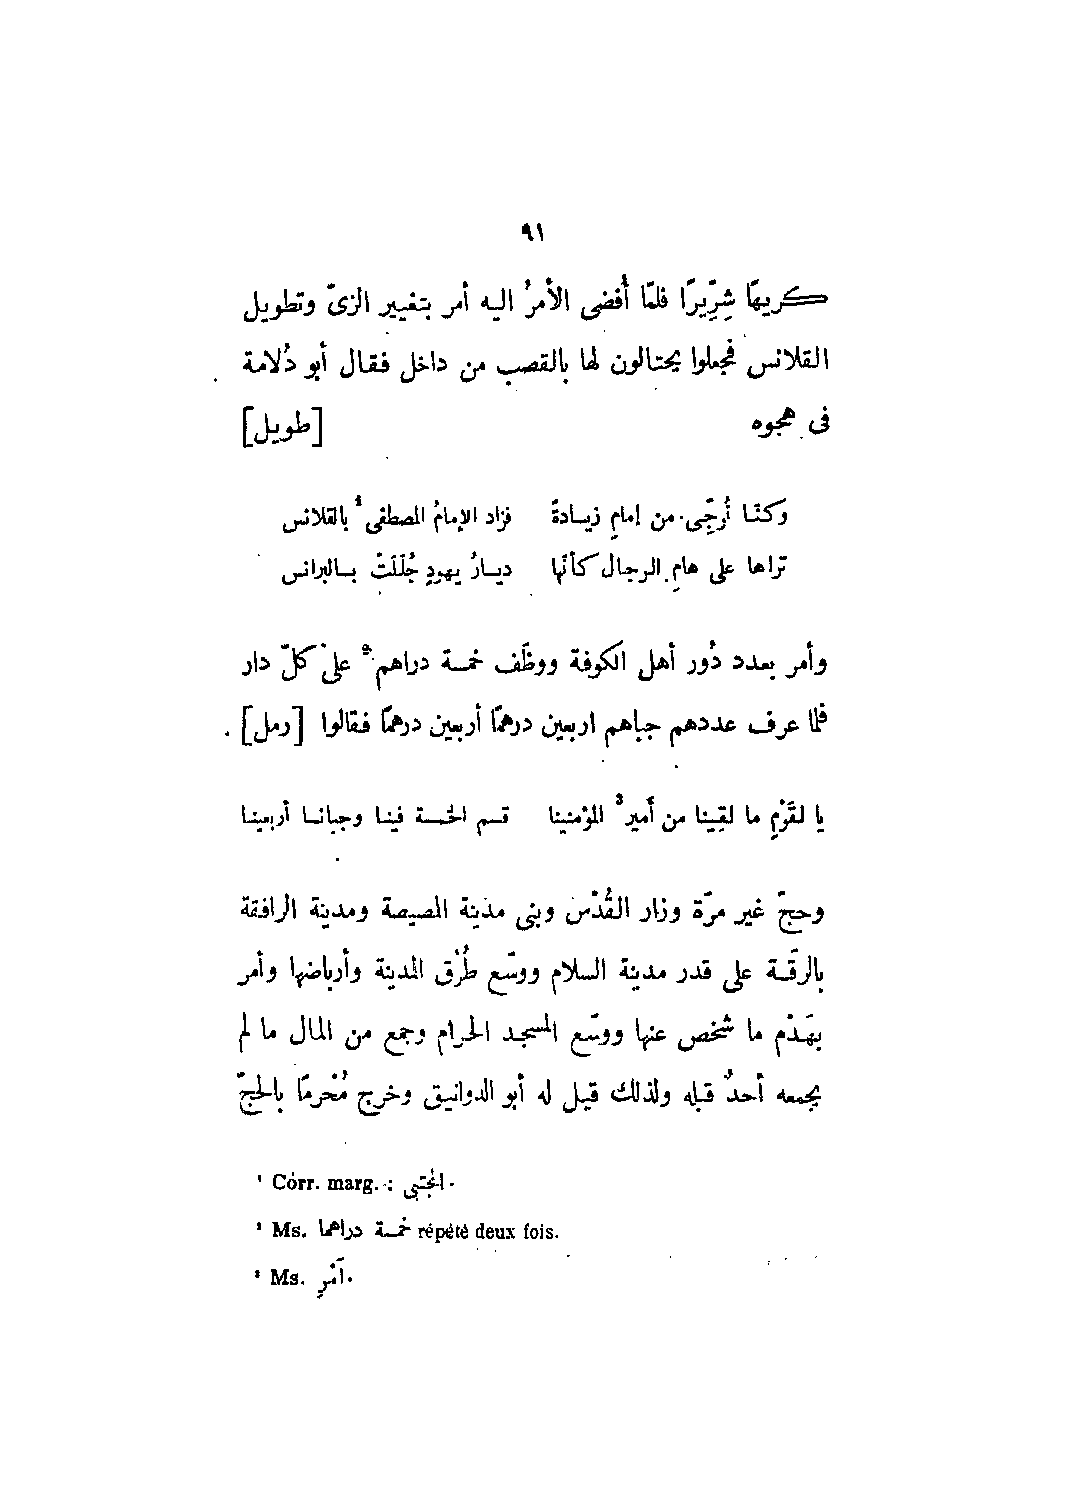 ٩١
كريهًا شِرِّيرًا فلمّا أُفضى الأمرُ اليه أمر بتغيير الزىّ وتطويل
القلانس فجعلوا يحتالون لها بالقصب من داخل فقال أبو دُلامة
فى هجوه [طويل]
وكنّا نُرجّى من إمامٍ زيادةً فزاد الإمامُ المصطفى¹ بالقلانس
تراها على هامِ الرجال كأنّها ديارُ يهودٍ جُلّلَتْ بالبرانس
وأمر بعدد دُور أهل الكوفة ووظّف خمسة دراهم² على كلّ دار
فلما عرف عددهم جباهم اربعين درهمًا أربعين درهمًا فقالوا [رمل]
يا لقَوْمٍ ما لقِينا من أَمير³ المؤمنينا قسم الخمسة فينا وجبانا أربعينا
وحجّ غير مرّة وزار القُدْس وبنى مدينة المصيصة ومدينة الرافقة
بالرقّة على قدر مدينة السلام ووسّع طُرْق المدينة وأرباضها وأمر
بهَدْم ما شخص عنها ووسّع المسجد الحرام وجمع من المال ما لم
يجمعه أحدٌ قبله ولذلك قيل له أبو الدوانيق وخرج مُحْرمًا بالحجّ
¹ Corr. marg. : المجتبى.
² Ms. خمسة دراهما répété deux fois.
³ Ms. آمْرِ.